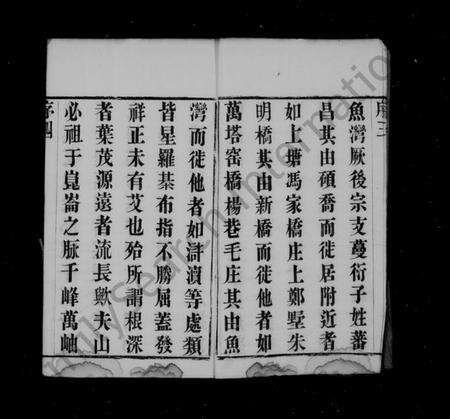 序三
魚灣厥後宗支蔓衍子姓蕃
昌其由碩喬而徙居附近者
如上塘馮家橋庄上鄭墅朱
明橋其由新橋而徙他者如
萬塔窑橋楊巷毛庄其由魚
灣而徙他者如滸濵等處類
皆星羅棊布指不勝屈葢發
祥正未有艾也殆所謂根深
者葉茂源遠者流長歟夫山
必祖于崑崙之脉千峰萬岫
序四
FamilySearch International